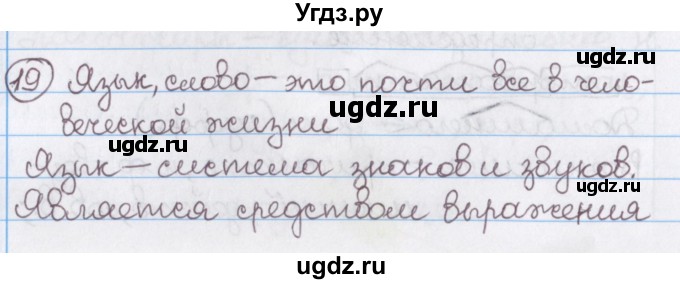 Угдз.ру
19 Язык, слово — это почти все в чело-
веческой жизни
Язык — система знаков и звуков.
Является средством выражения
ugdz.ru
ugdz.ru
ugdz.ru
ugdz.ru
ugdz.ru